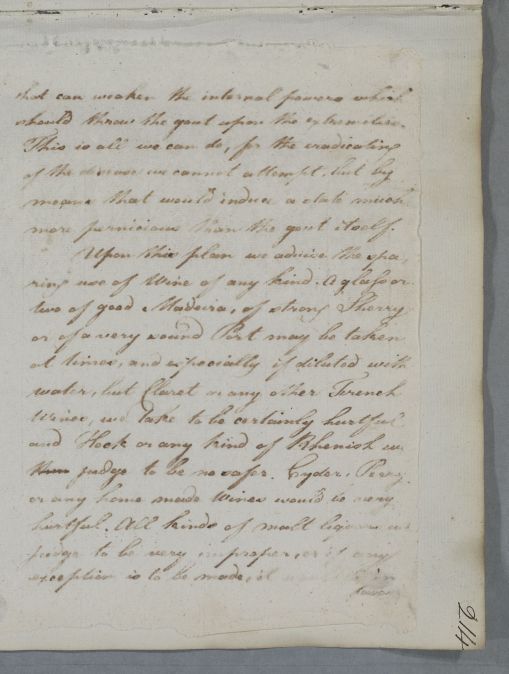 that can weaken the internal powers which
should throw the gout upon the extremities.
This is all we can do, for the eradicating
of the disease we cannot attempt, but by
means that would induce a state much
more pernicious than the gout itself.
Upon this plan we advise the spa,
ring use of Wine of any kind. A glass or
two of good Madeira, of strong Sherry
or of a very sound Port may be taken
at times, and especially if diluted with
water, but Claret or any other French
Wines, we take to be certainly hurtful
and Hock or any kind of Rhenish we
judge to be no safer. Cyder, Perry
or any home made Wines would be very
hurtful. All kinds of malt liquors we
judge to be very improper, or if any
exception is to be made, it would be in
favour
214